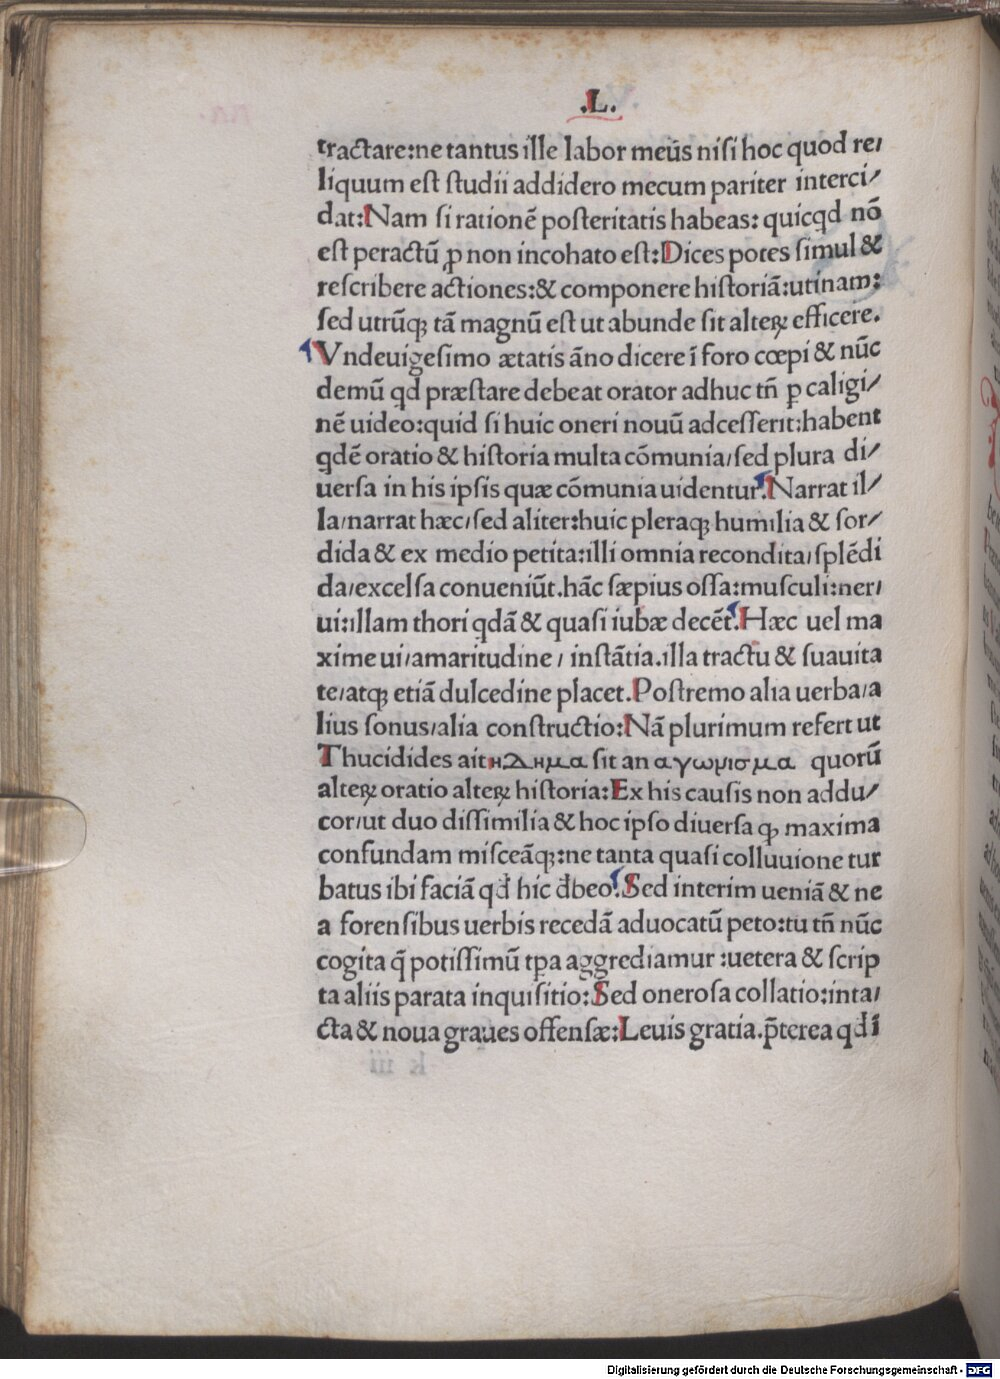 .L.
tractare:ne tantus ille labor meus nisi hoc quod re/
liquum est studii addidero mecum pariter interci/
dat:Nam si rationē posteritatis habeas: quicqd nō
est peractū ꝓ non incohato est:Dices potes simul &
rescribere actiones:& componere historiā:utinam:
sed utrūqꝫ tā magnū est ut abunde sit alteꝝ efficere.
Vndeuigesimo ætatis āno dicere ī foro cœpi & nūc
demū qd præstare debeat orator adhuc tñ ꝑ caligi/
nē uideo:quid si huic oneri nouū adcesserit:habent
qdē oratio & historia multa cōmunia/sed plura di/
uersa in his ipsis quæ cōmunia uidentur.Narrat il/
la/narrat hæc/sed aliter:huic pleraqꝫ humilia & sor/
dida & ex medio petita:illi omnia recondita/splēdi
da/excelsa conueniūt.hāc sæpius ossa:musculi:ner/
ui:illam thori qdā & quasi iubæ decēt.Hæc uel ma
xime ui/amaritudine/ instātia.illa tractu & suauita
te/atqꝫ etiā dulcedine placet.Postremo alia uerba/a
lius sonus/alia constructio:Nā plurimum refert ut
Thucidides ait κδημα sit an αγωνισμα quorū
alteꝝ oratio alteꝝ historia:Ex his causis non addu/
cor/ut duo dissimilia & hoc ipso diuersa qꝫ maxima
confundam misceāqꝫ:ne tanta quasi colluuione tur
batus ibi faciā qd hic dbeo.Sed interim ueniā & ne
a forensibus uerbis recedā aduocatū peto:tu tñ nūc
cogita q̄ potissimū tꝑa aggrediamur :uetera & scrip
ta aliis parata inquisitio:Sed onerosa collatio:inta/
cta & noua graues offensæ:Leuis gratia.p̄terea qd ī
Digitalisierung gefördert durch die Deutsche Forschungsgemeinschaft - DFG